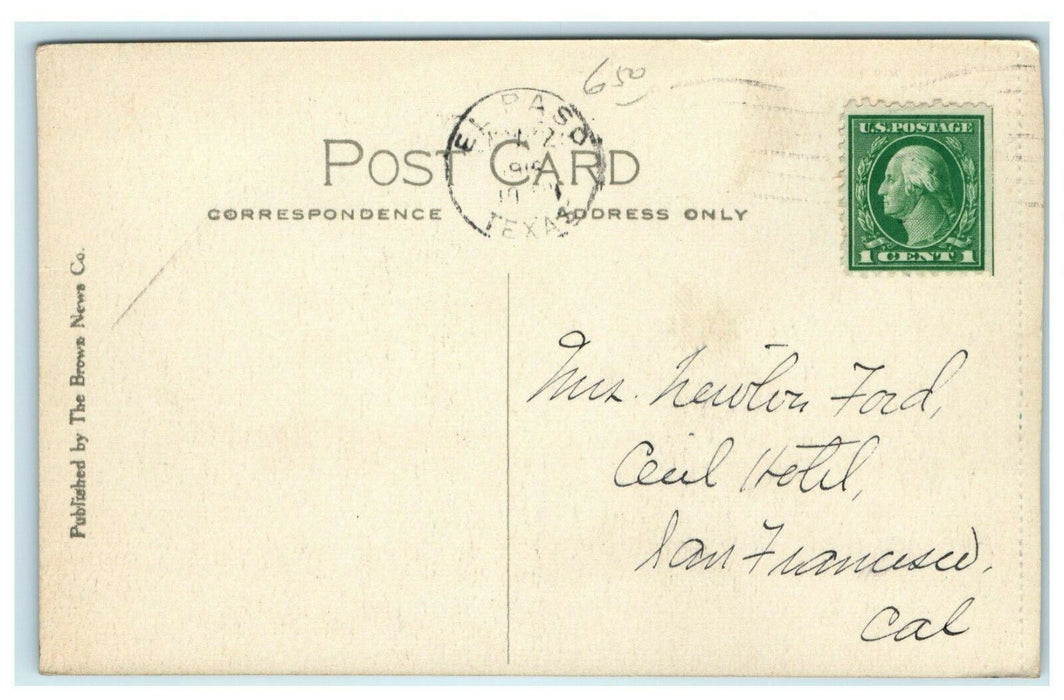 650
EL PASO
TEXAS
POST CARD
CORRESPONDENCE
ADDRESS ONLY
U.S. POSTAGE
1 CENT 1
Published by The Brown News Co.
Mrs. Newton Ford,
Cecil Hotel,
San Francisco.
Cal